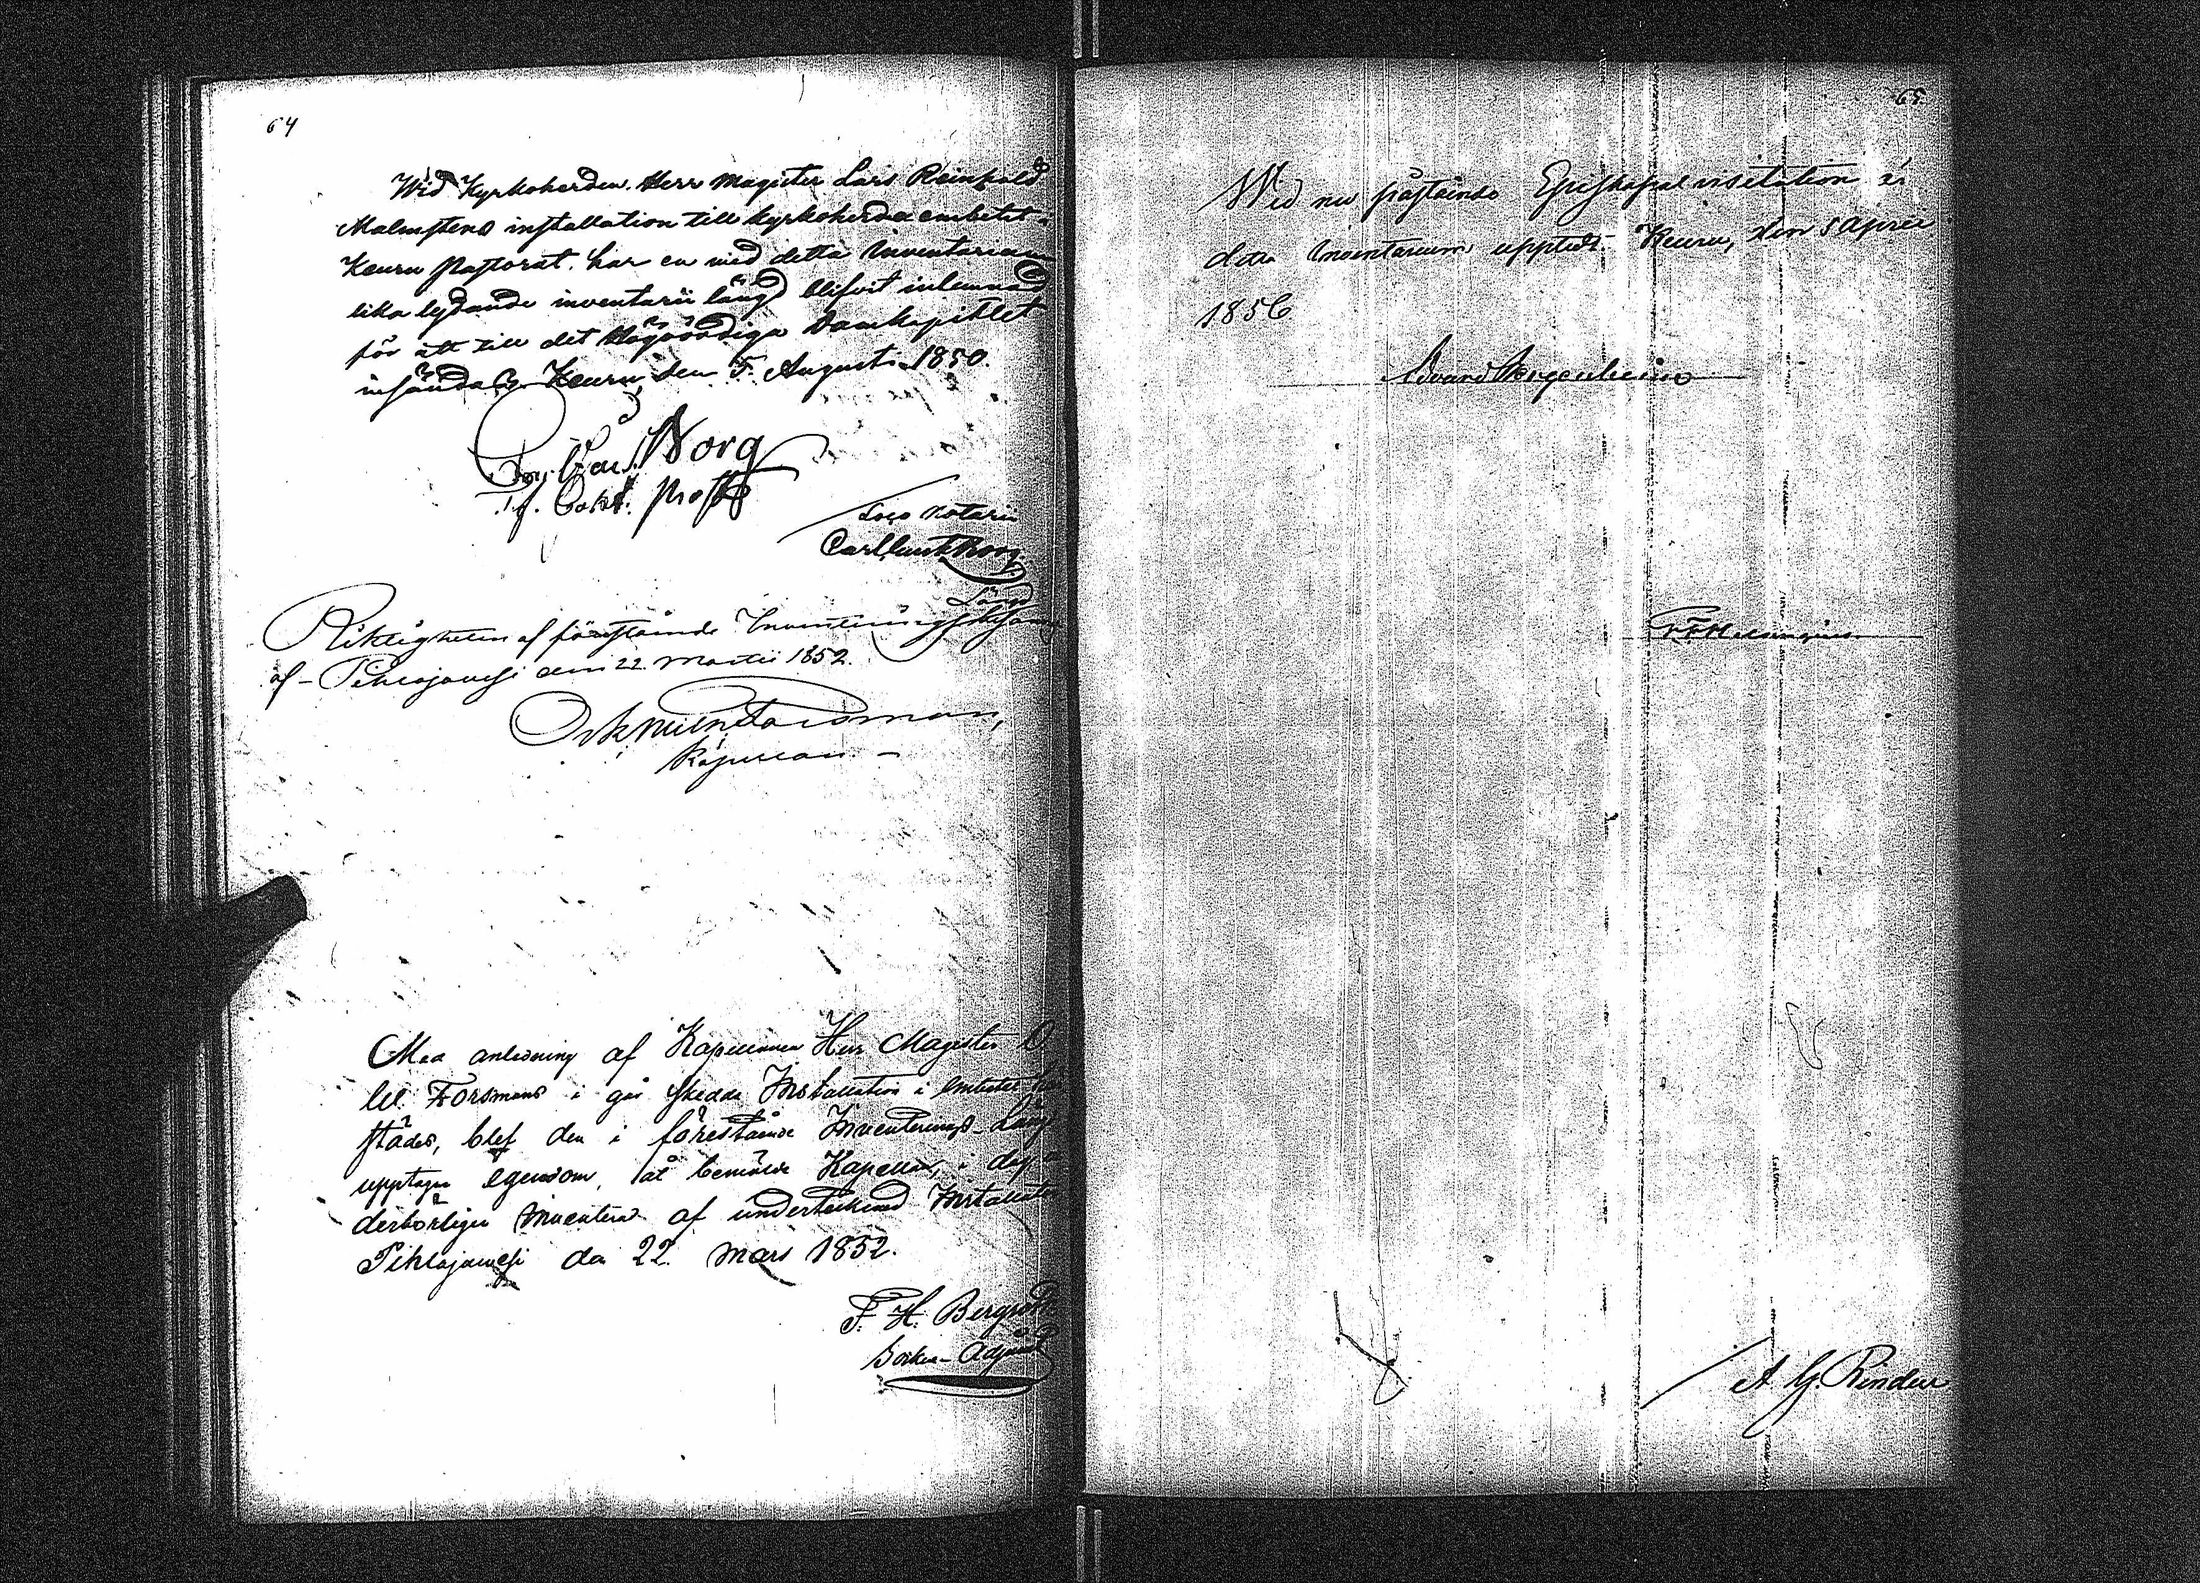 64
Wid Kyrkoherden Herr Magister Lars Reinhold
Malmstens installation till kyrkoherda embetet i
Keuru Pastorat har en med detta Inventarium
lika lydande inventarii längd blifvit inlemnad
för att till det Högvördiga Domkapitlet
insändas. Keuru, den 5 Augusti 1850.
Borg
T. f. Cont. Prost
Loco Notarii
Carl Borg
Riktigheten af förestående Inventerings
af Pihlajavesi den 22 Martii 1852.
Forsman,
Kapellan.
Med anledning af Kapellanen Herr Magister O
lel Forsmans i går skedda Installation i Embetet här
städes, blef den i förestående Inventerings-Längd
upptagne egendom, åt bemälde Kapellan, i dag
derbörligen Inventerad af undertecknad Installator
Pihlajavesi den 22. Mars 1852.
F. H. Bergroth
Socken-Adjunct
65.
Wid nu påstående Episkopal visitation är
detta Inventarium uppteedt. Keuru, den 5 April
1856.
Edvard Bergenheim
A G. Rindell